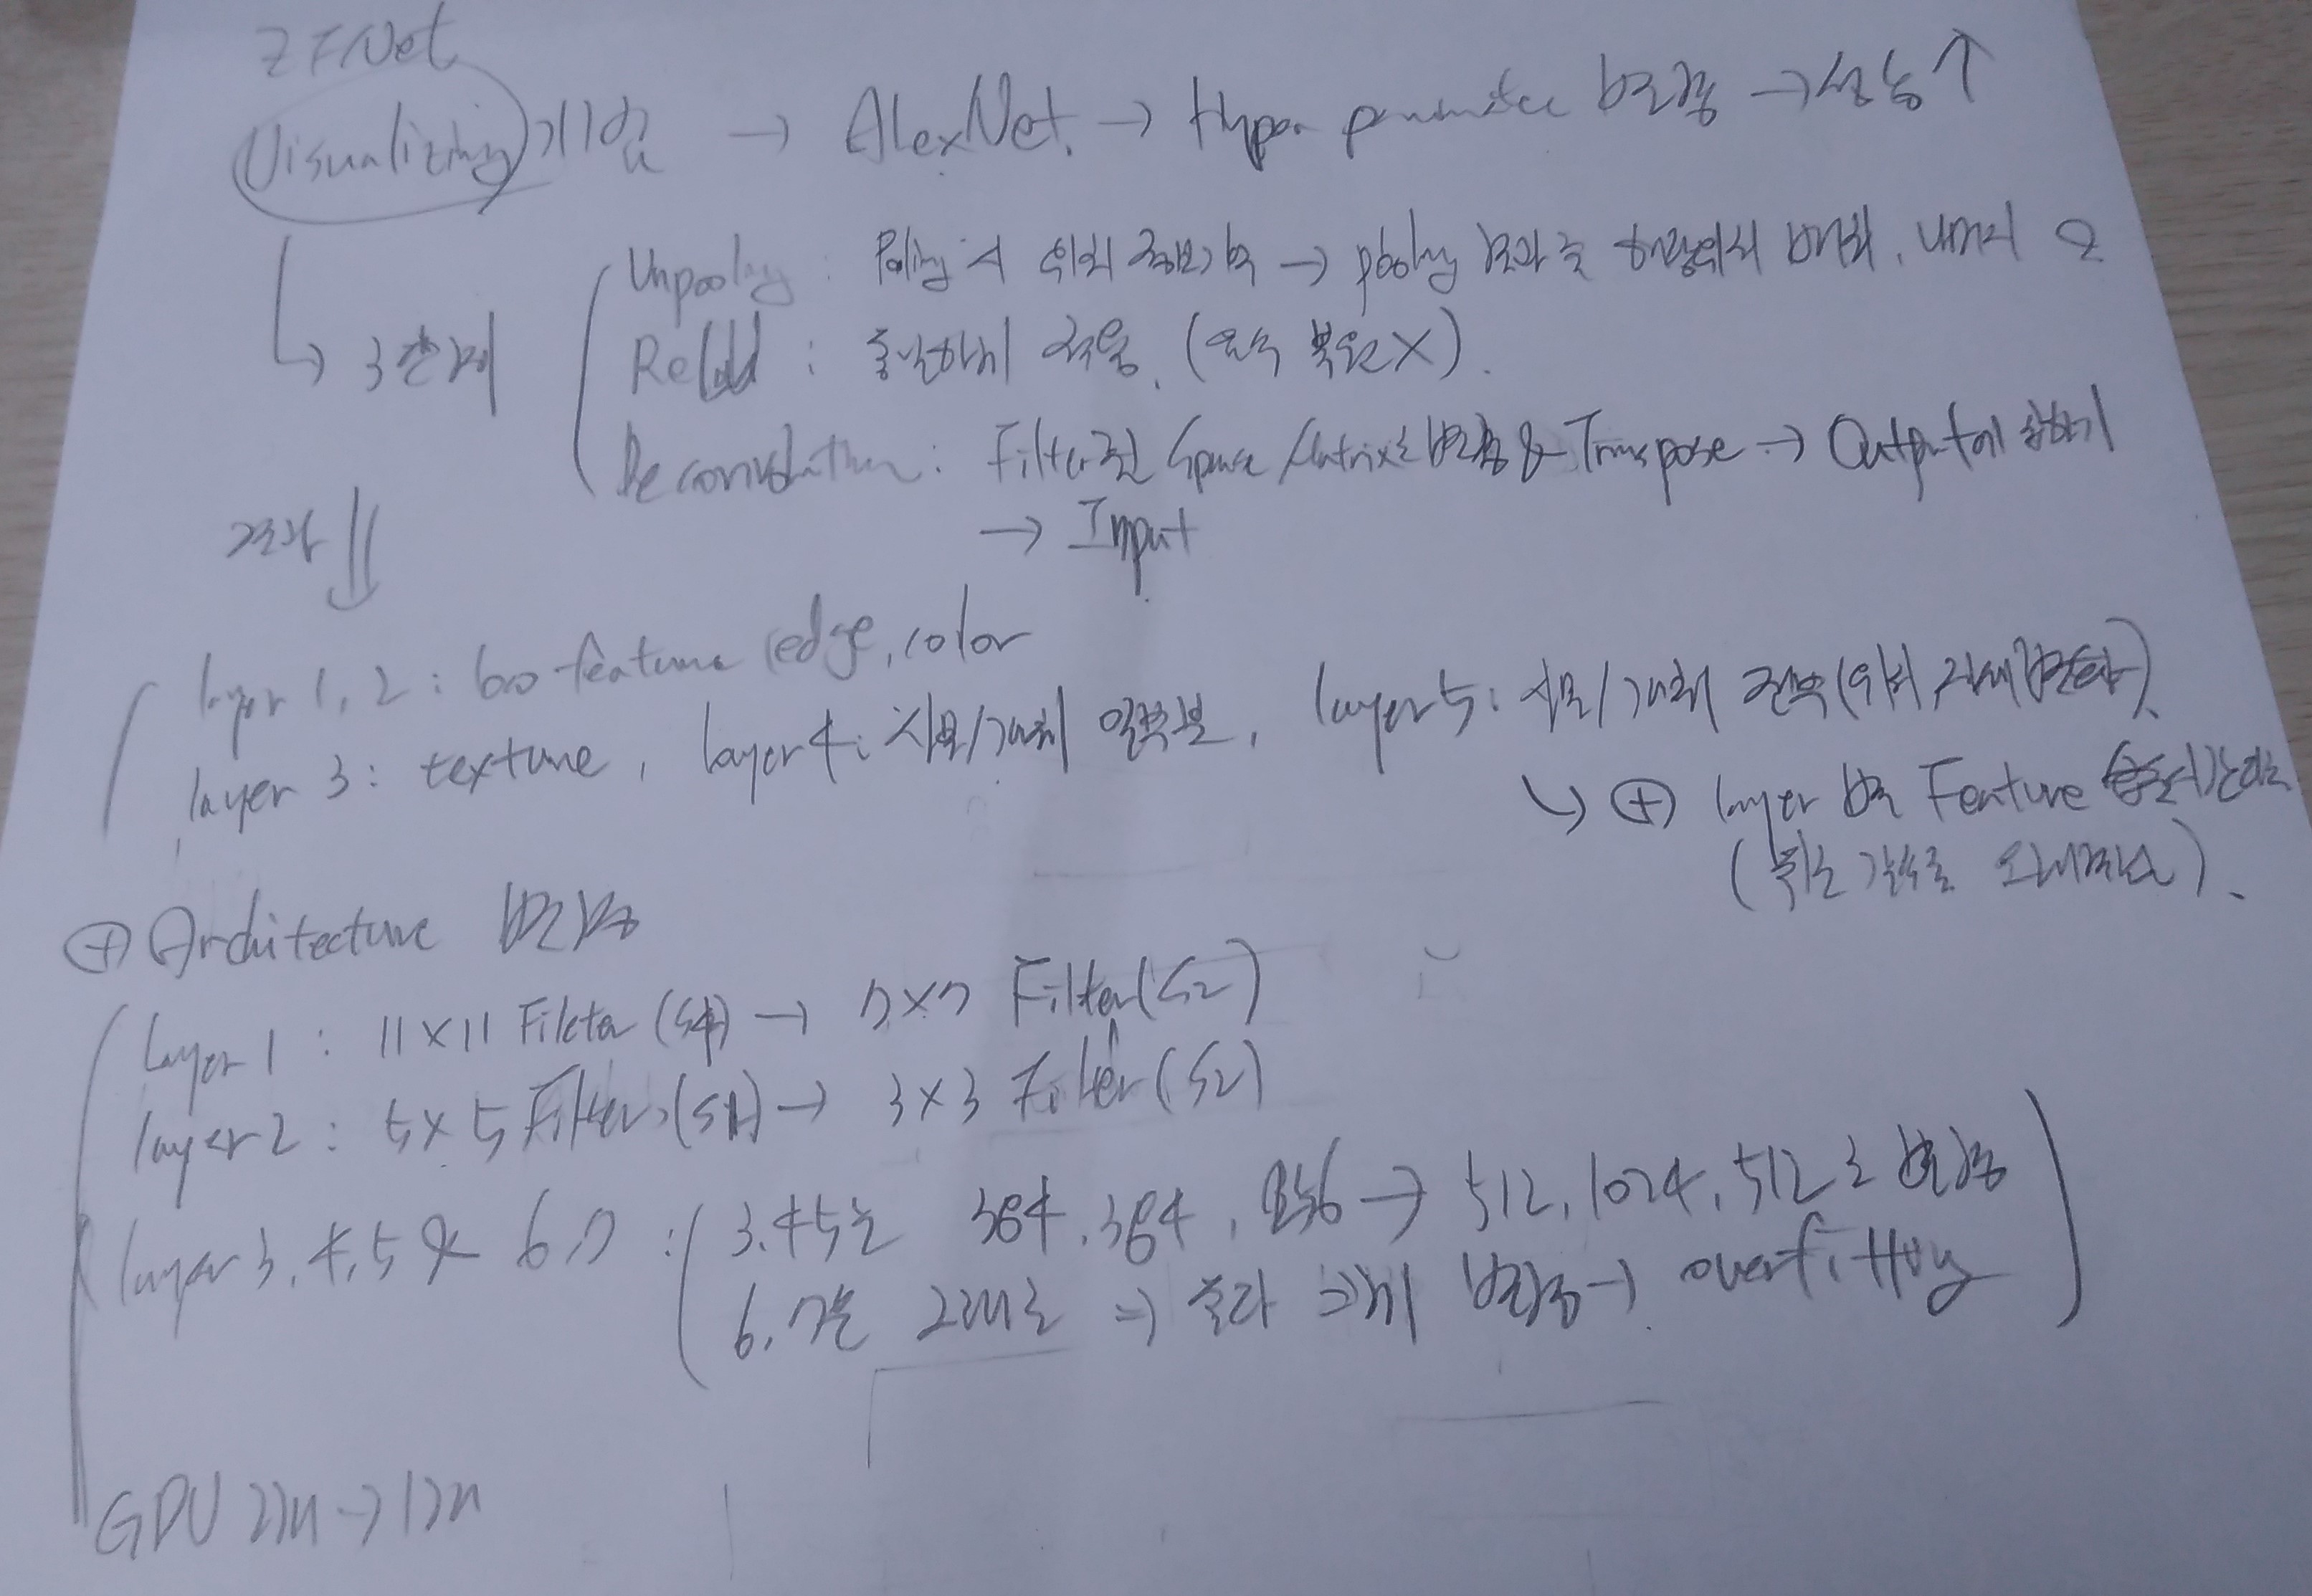 ZFNet
Visualizing 기법 → AlexNet. → Hyper parameter 변경 → 성능↑
↳ 3단계
Unpooling : Pooling시 위치 정보 기억 → pooling 결과를 해당위치 배치, 나머지 0
ReLU : 동일하게 적용. (음수 복원X).
Deconvolution : Filter를 Sparse Matrix로 변경 & Transpose → Output에 곱하기
→ Input
결과 ⇓
layer 1, 2 : low feature (edge, color
layer 3 : texture, layer 4 : 사물/개체 일부분, layer 5 : 사물/개체 전부(위치, 자세변화).
↳ ⊕ layer 별 Feature
( 깊을수록 오래걸림).
⊕ Architecture 변경
layer 1 : 11×11 Fileter (S4) → 7×7 Filter(S2)
layer 2 : 5×5 Filter (S1) → 3×3 Filter (S2)
layer 3, 4, 5 & 6, 7 : 3, 4, 5는 384, 384, 256 → 512, 1024, 512로 변경
6, 7은 → 둘다 크게 변경 → overfitting
GPU 2개 → 1개